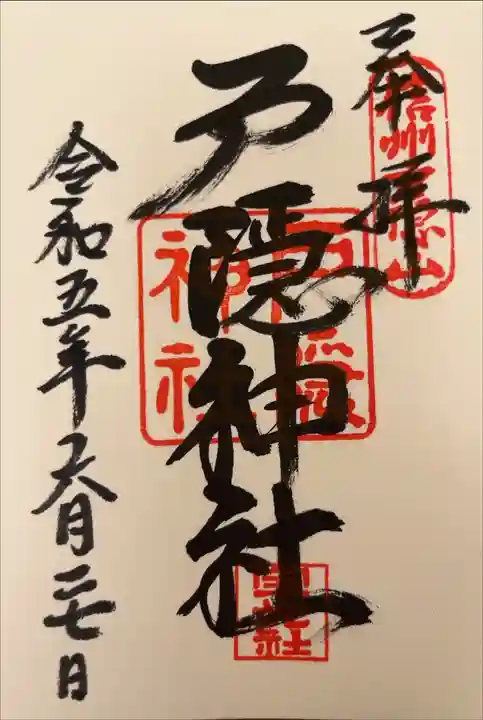 奉拝
信州戸隠山
戸隠神社
戸隠神社
令和五年六月二七日